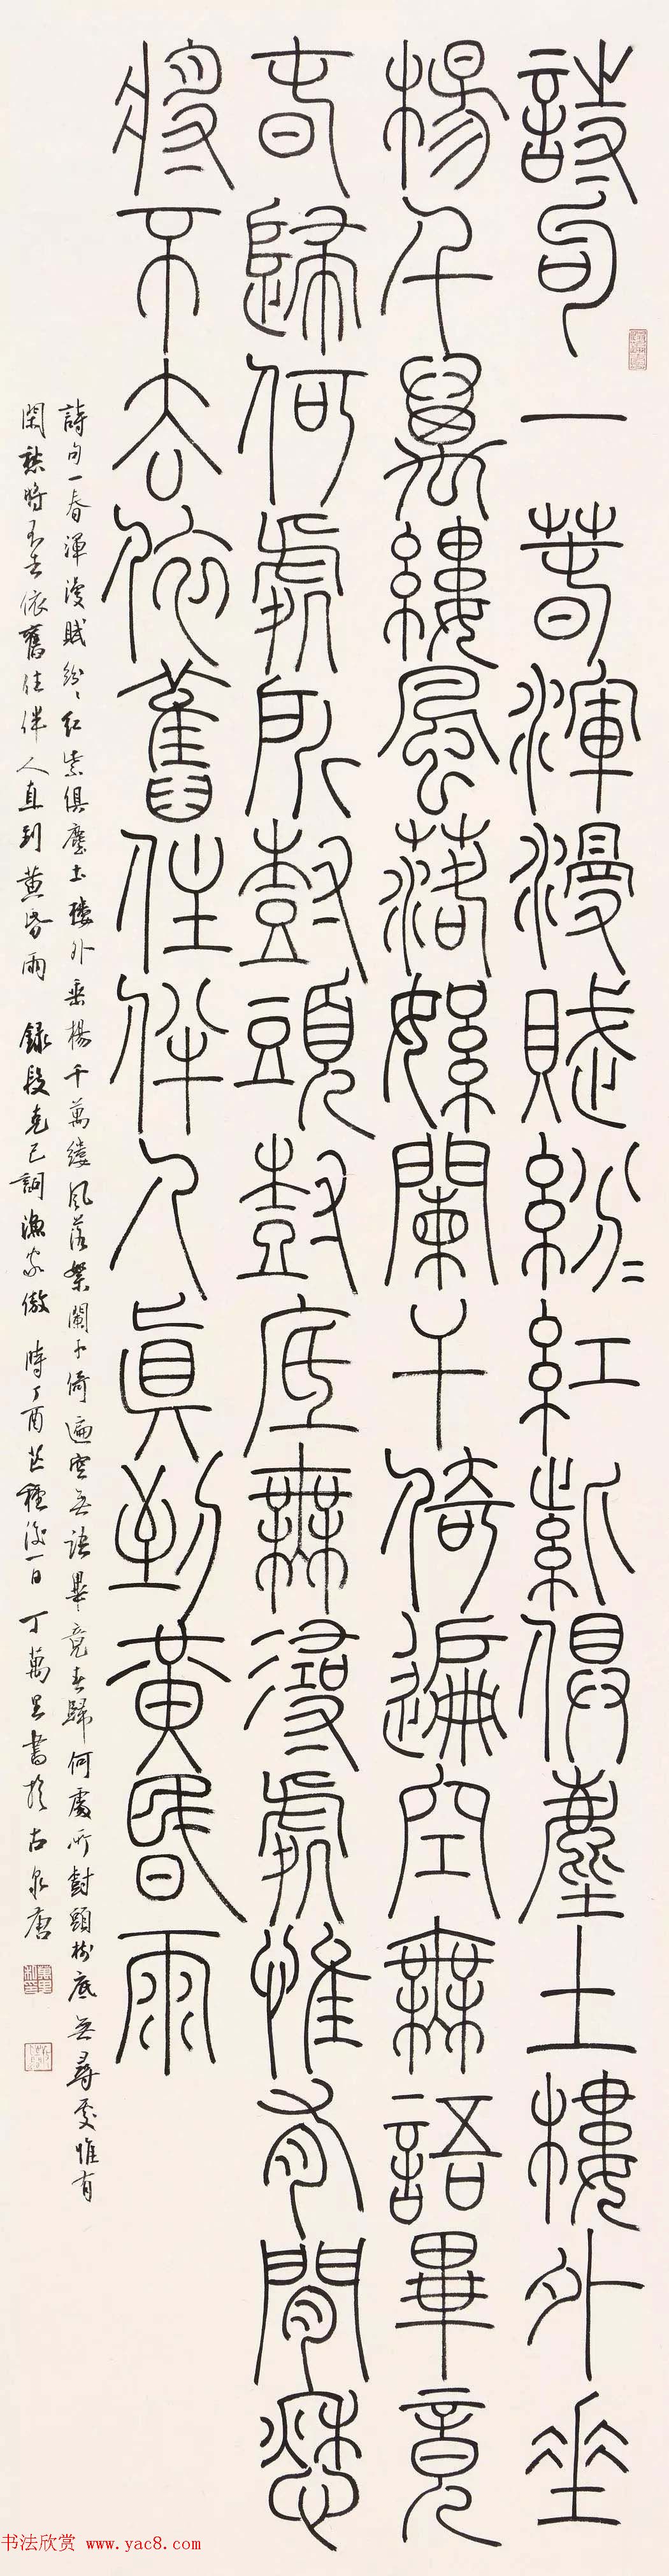 詩句一春渾漫賦紛〻紅紫俱塵土樓外垂
楊千萬縷風落絮闌干倚遍空無語畢竟
春歸何處所樹頭樹底無尋處惟有閒愁
將不去依舊住伴人直到黃昏雨
詩句一春渾漫賦紛〻紅紫俱塵土樓外垂楊千萬縷風落絮闌干倚遍空無語畢竟春歸何處所樹頭樹底無尋處惟有
閑愁將不去依舊住伴人直到黃昏雨 錄段克己詞漁家傲 時丁酉芒種後一日 丁萬里書於古泉唐
书法欣赏 www.yac8.com